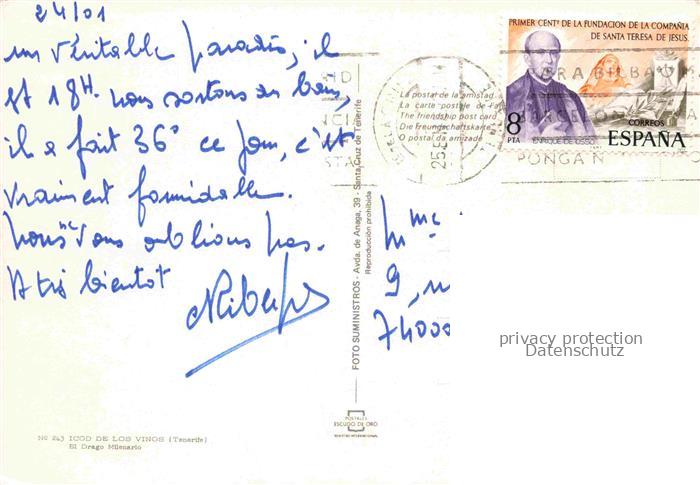 24/01
un véritable paradis, il
est 18H. nous sortons du bain,
il a fait 36° ce jour, c'est
vraiment formidable.
Nous ne vous oublions pas.
A très bientôt
Mme
9,
74000
PRIMER CENTº DE LA FUNDACION DE LA COMPAÑIA
DE SANTA TERESA DE JESUS.
8
PTA
CORREOS
ENRIQUE DE OSSO
ESPAÑA
PONGA N
La postal de la amistad
La carte postale de
The friendship post card
Die Freundschaftskarte
O postal da amizade
FOTO SUMINISTROS - Avda. de Anaga, 39 - Santa Cruz de Tenerife
Reproducción prohibida
POSTALES
ESCUDO DE ORO
REGISTRO INTERNACIONAL
No 243 ICOD DE LOS VINOS (Tenerife)
El Drago Milenario
privacy protection
Datenschutz